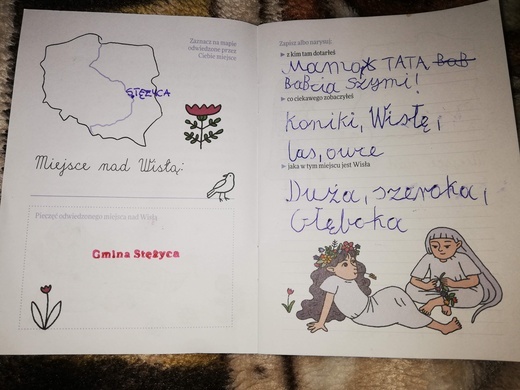 Zaznacz na mapie
odwiedzone przez
Ciebie miejsce
STĘŻYCA
Miejsce nad Wisłą:
Pieczęć odwiedzonego miejsca nad Wisłą
Gmina Stężyca
Zapisz albo narysuj:
z kim tam dotarłeś
Mama, TATA BaB
BaBcia Szymi!
co ciekawego zobaczyłeś
Koniki, Wisłę i
las, owce
jaka w tym miejscu jest Wisła
Duża, szeroka i
Głęboka